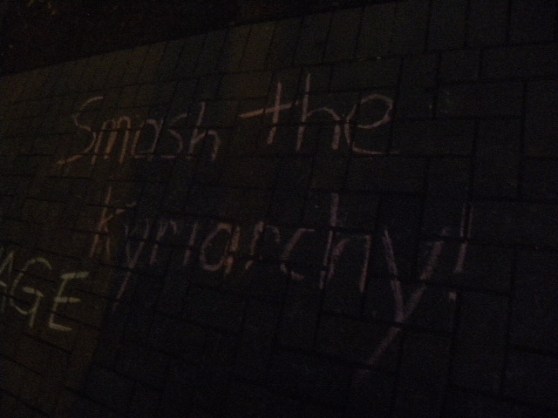 Smash the
Kyriarchy!
AGE